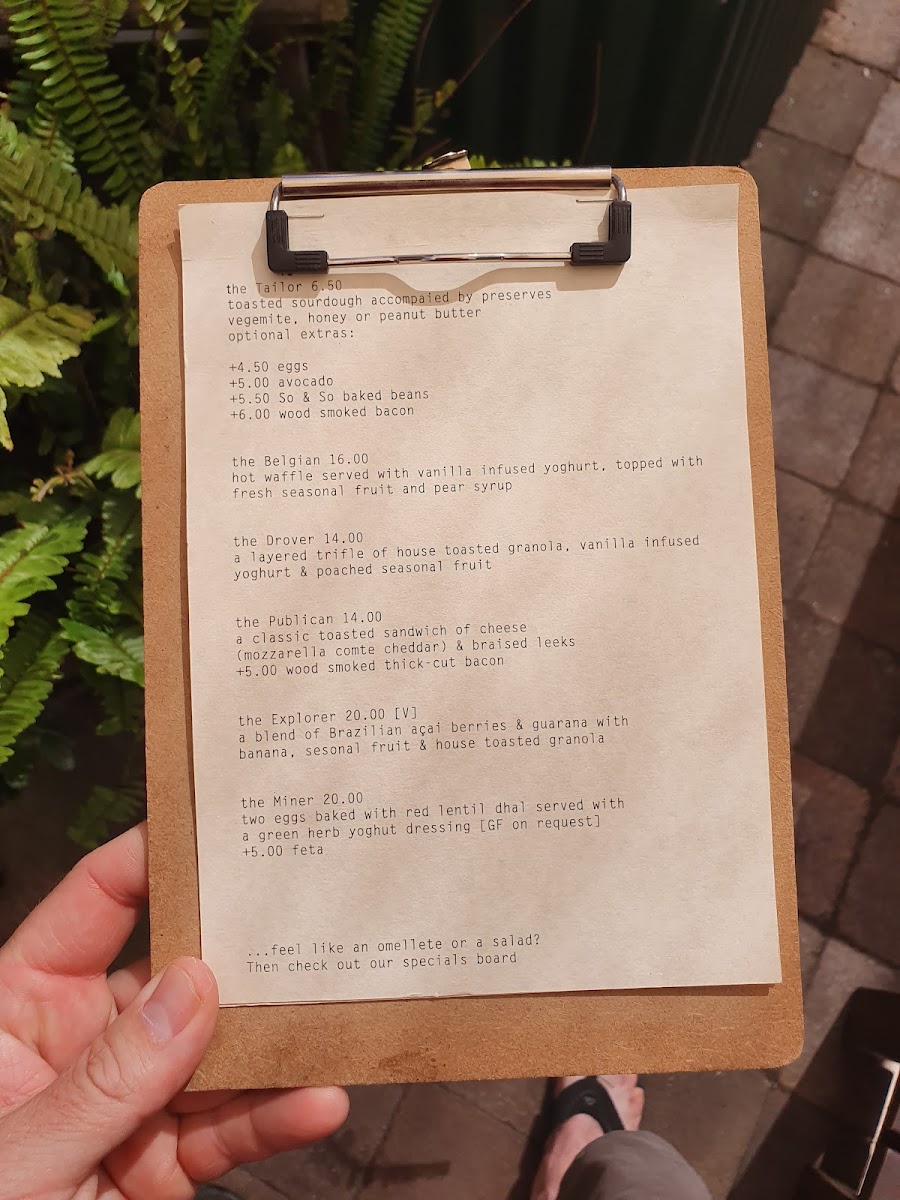 the Tailor 6.50
toasted sourdough accompaied by preserves
vegemite, honey or peanut butter
optional extras:
+4.50 eggs
+5.00 avocado
+5.50 So & So baked beans
+6.00 wood smoked bacon
the Belgian 16.00
hot waffle served with vanilla infused yoghurt, topped with
fresh seasonal fruit and pear syrup
the Drover 14.00
a layered trifle of house toasted granola, vanilla infused
yoghurt & poached seasonal fruit
the Publican 14.00
a classic toasted sandwich of cheese
(mozzarella comte cheddar) & braised leeks
+5.00 wood smoked thick-cut bacon
the Explorer 20.00 [V]
a blend of Brazilian açai berries & guarana with
banana, sesonal fruit & house toasted granola
the Miner 20.00
two eggs baked with red lentil dhal served with
a green herb yoghut dressing [GF on request]
+5.00 feta
...feel like an omellete or a salad?
Then check out our specials board